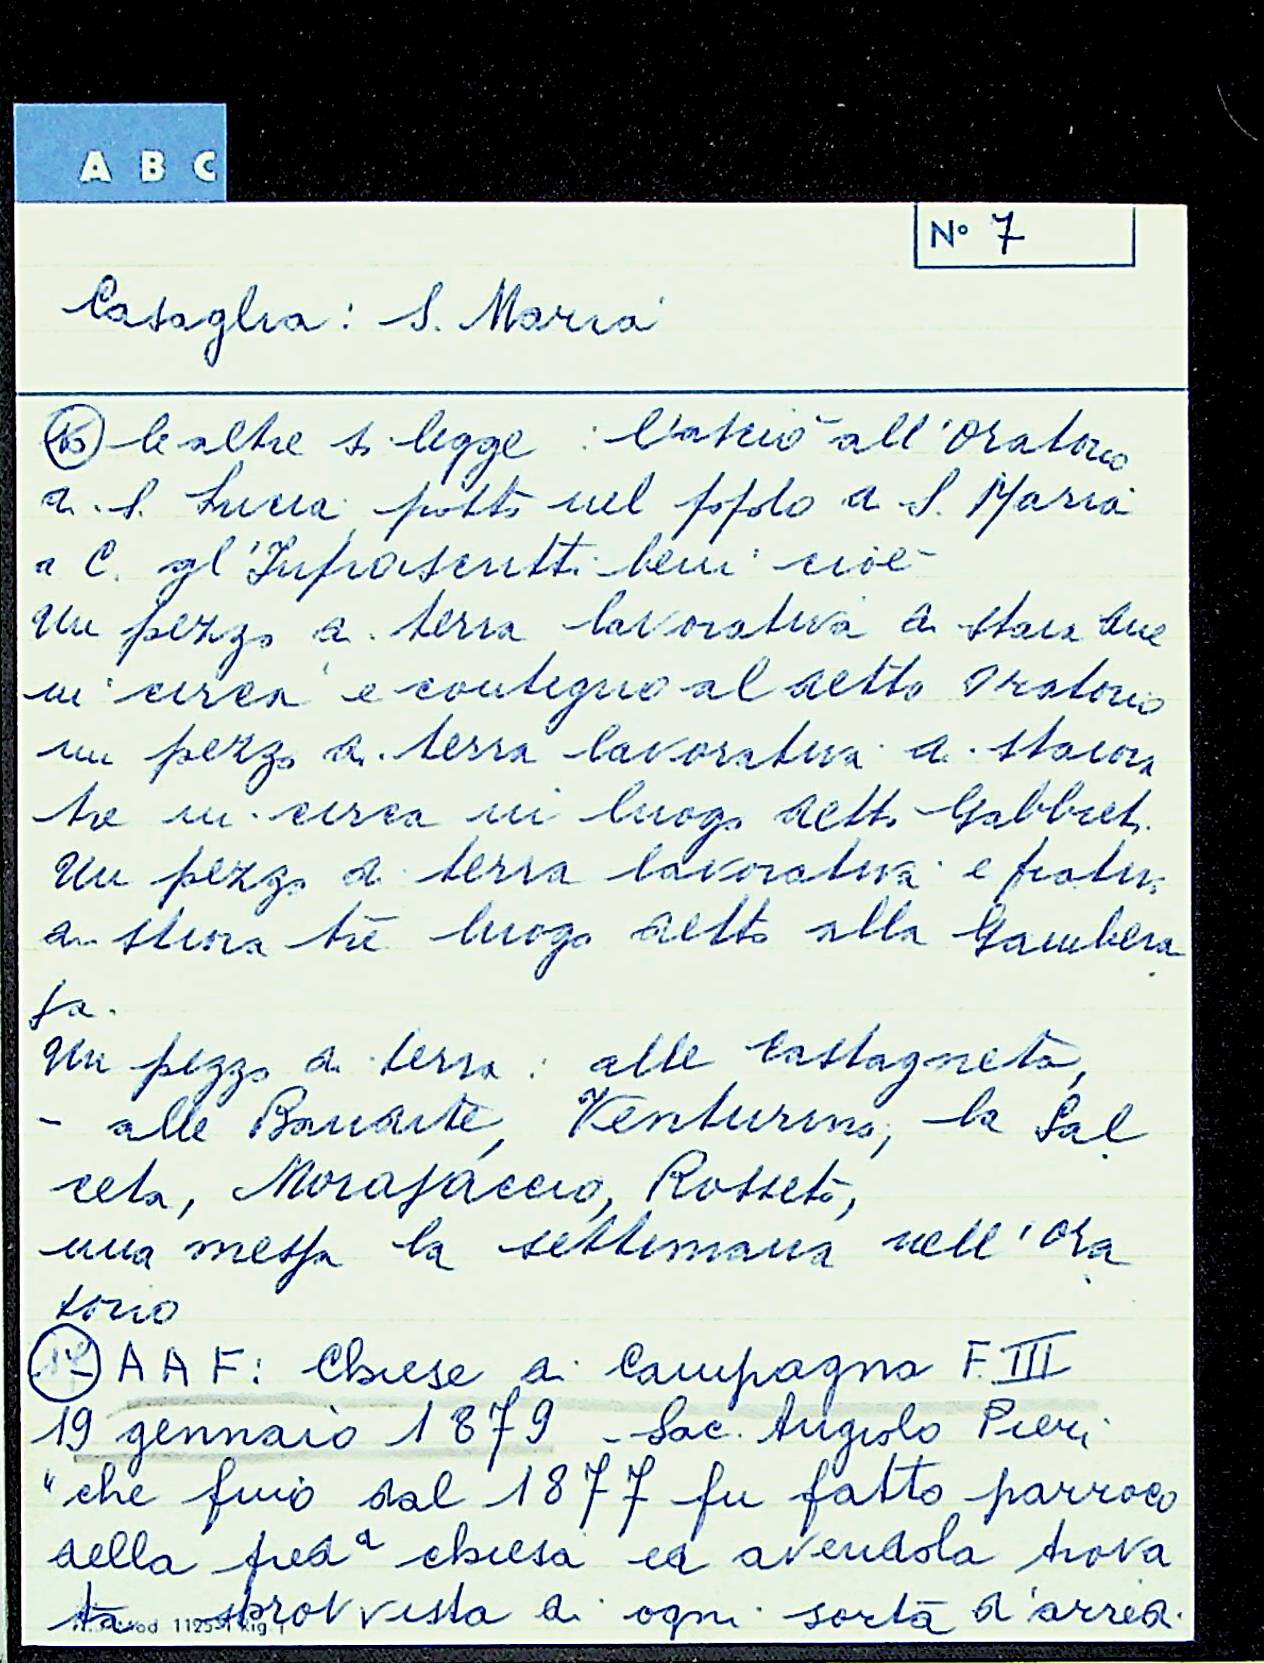 A B C
N° 7
Casaglia: S. Maria
le altre si legge: lasciò all'Oratorio
di S. Lucia posto nel popolo di S. Maria
a C. gl'Infrascritti beni cioè
Un pezzo di terra lavorativa di staia due
in circa e contiguo al detto Oratorio
un pezzo di terra lavorativa di staiora
tre in circa in luogo detto Gabbreti.
Un pezzo di terra lavorativa e prativa
di stiora tre luogo detto alla Gambera
ja.
Un pezzo di terra: alle Castagneto,
- alle Bandite, Venturino, la Sal
ceta, Morajaccio, Rosseto,
una messa la settimana nell'Ora
torio
17 A A F: Chiese di Campagna F. III
19 gennaio 1879 - Sac. Angiolo Pieri
"che fino dal 1877 fu fatto parroco
della predª chiesa ed avendola trova
ta sprovvista di ogni sorta d'arredi